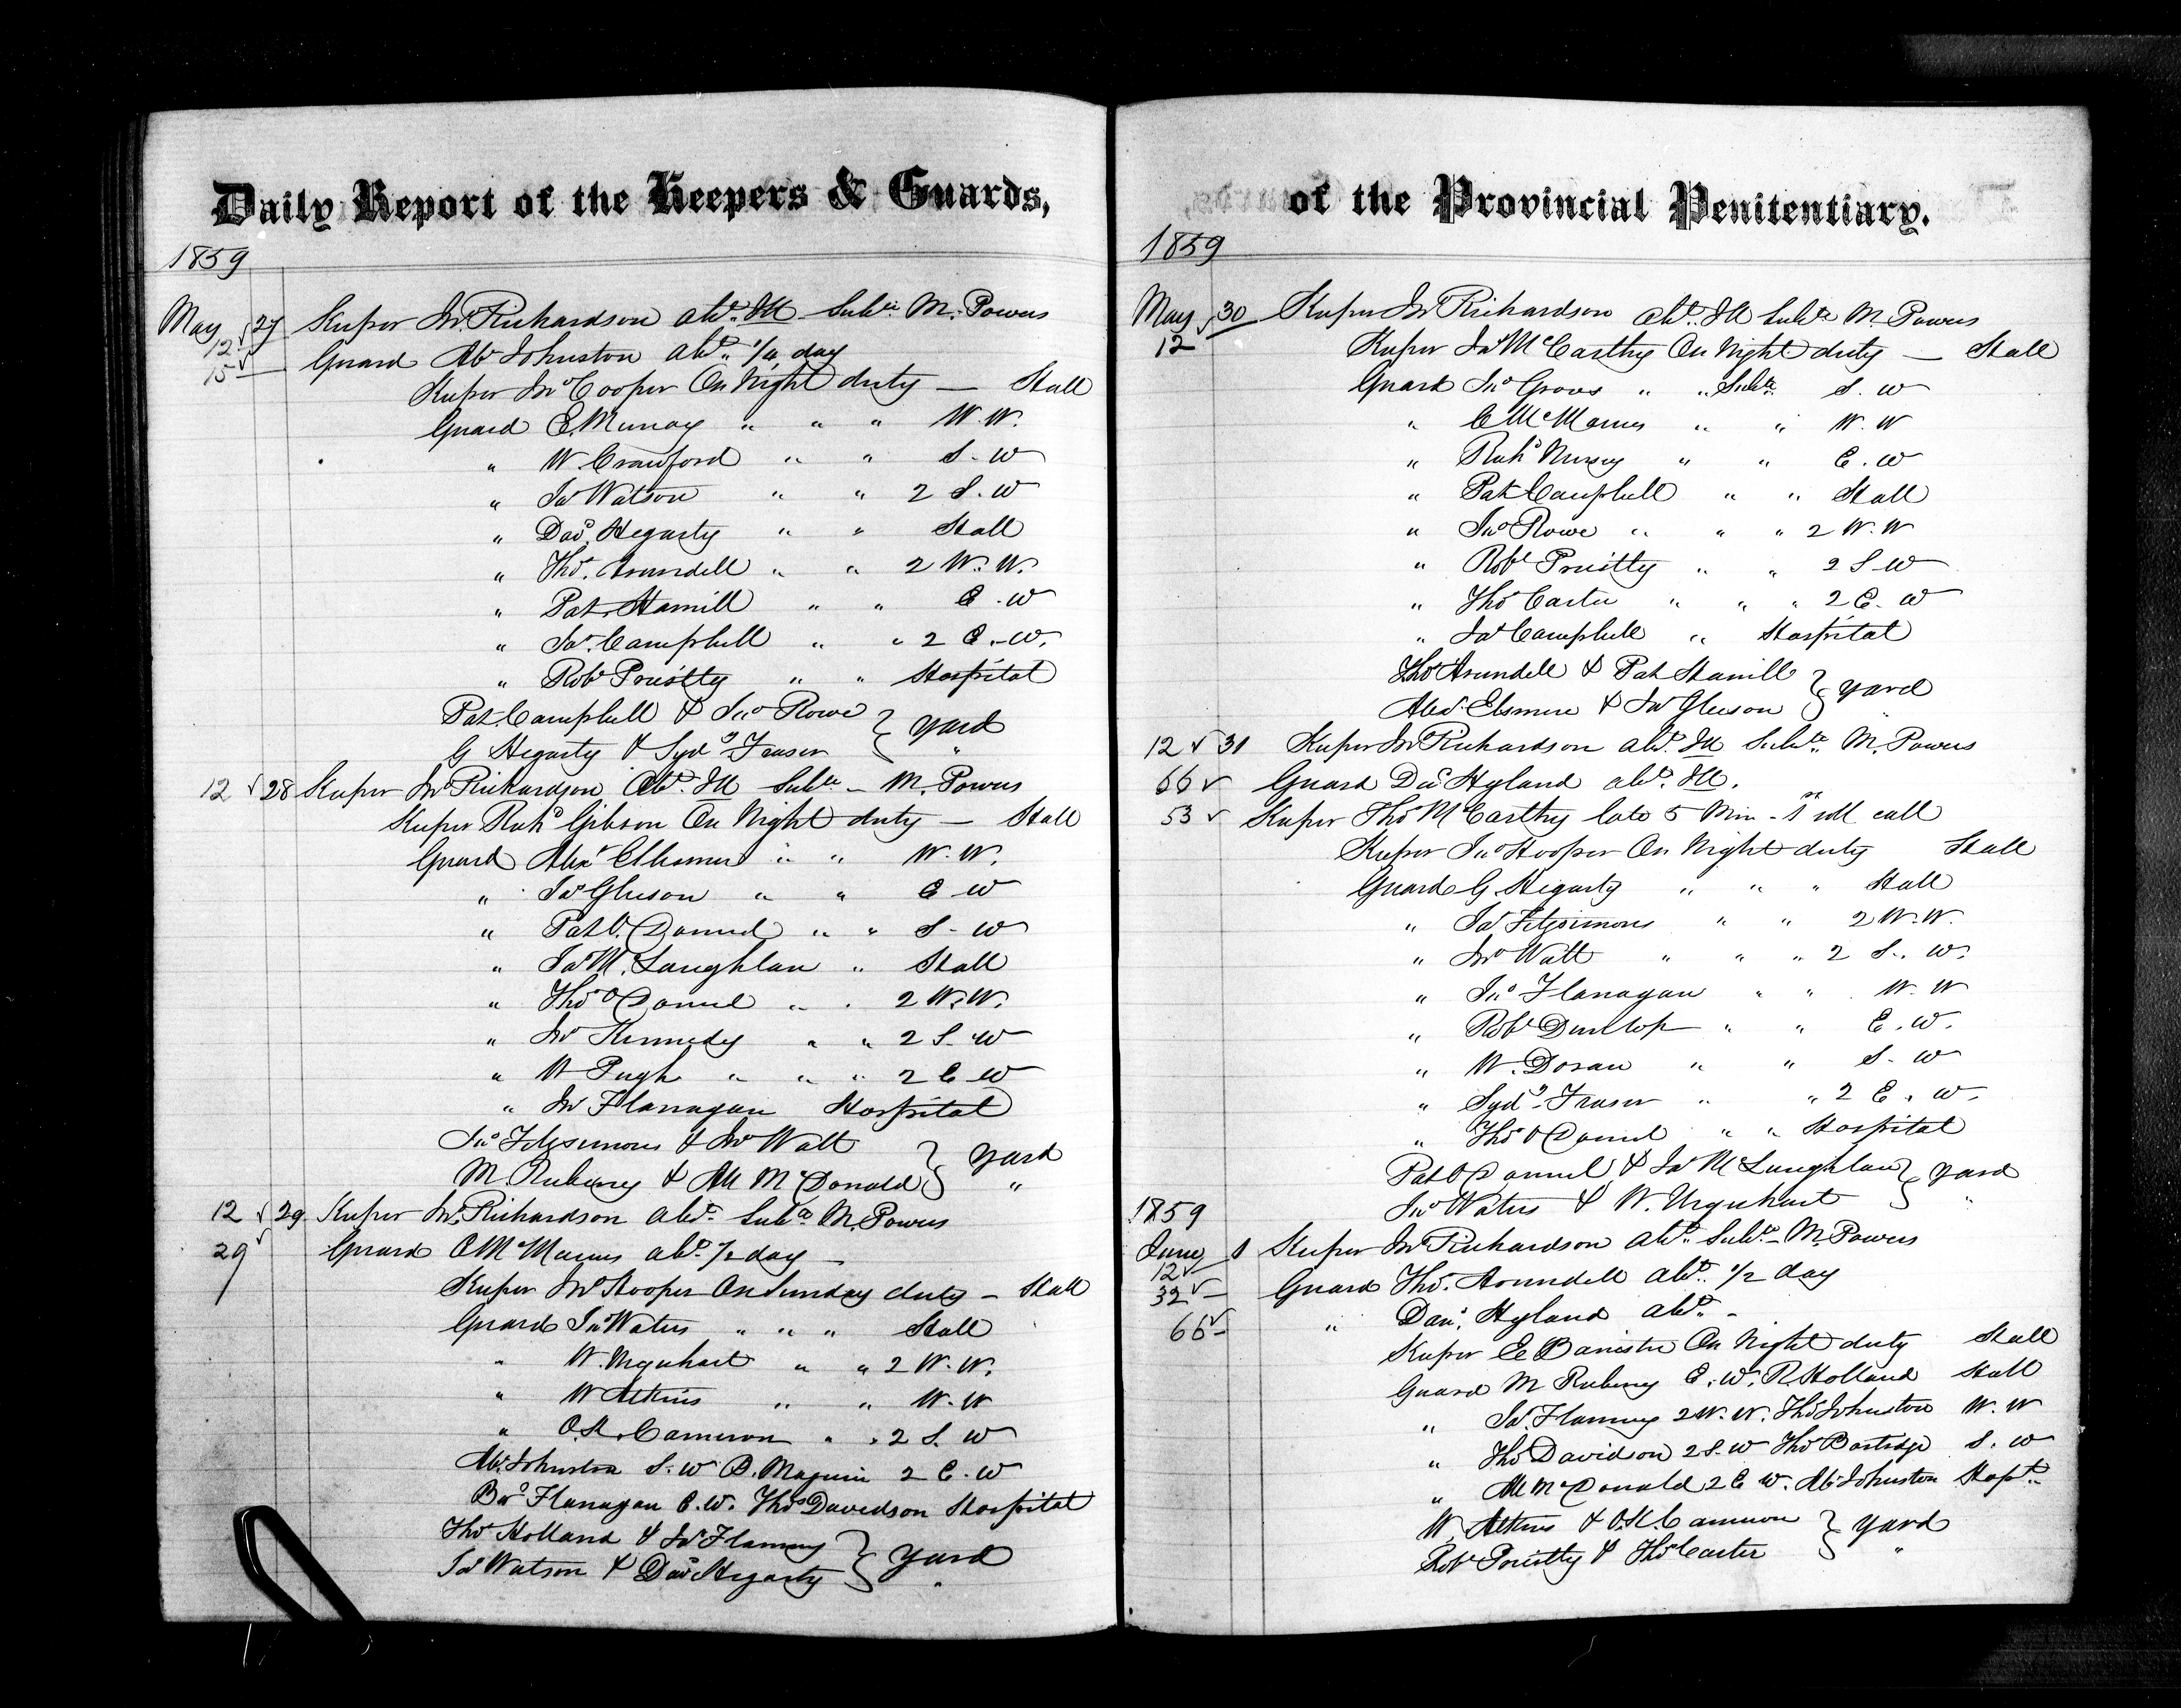 Daily Report of the Keepers & Guards,
1859
May 27 Keeper Jno Richardson abst. Ill Subte M. Powers
12
15 Guard Ab Johnston abst. 1/4 day
Keeper Jno Cooper On Night duty — Hall
Guard E. Murray " " " W. W.
" W Crawford " " S. W
" Jas Watson " " 2 S. W
" Davd Hegarty " " Hall
" Thos. Arundell " " 2 W. W.
" Pat Hamill " " E. W
" Jas. Campbell " " 2 E. W.
" Robt Priestly " " Hospital
Pat Campbell & Jno Rowe } Yard
G Hegarty & Sydy Fraser "
12 28 Keeper Jno Richardson Abst. Ill Subte - M. Powers
Keeper Richd Gibson On Night duty — Hall
Guard Alexr Ellesmere " " W. W.
" Jas Gleeson " " E W
" Pat O. Donnel " " S. W
" Jas McLaughlan " Hall
" Thos O Donnel " " 2 W. W.
" Jno Kennedy " " 2 S. W
" W Pugh " " " 2 E W
" Jno Flanagan Hospital
Jas Fitzsimons & Jno Watt } Yard
M. Rubeny & Al McDonald "
12 29 Keeper Jno. Richardson abst. Subte M. Powers
29 Guard C McManus abst. 1/2 day —
Keeper Jno Hooper On Sunday duty — Hall
Guard Jno Waters " " " Hall
" W. Urquhart " " 2 W. W.
" W Atkins " " W. W
" O.K. Cameron " " 2 S. W
Ab. Johnston S. W B. Maguire 2 E. W
Bd Flanagan E. W. Thos Davidson Hospital
Thos Holland & Jas Flaming } Yard
Jas Watson & Davd Hegarty "
of the Provincial Penitentiary.
1859
May 30 Keeper Jno Richardson Abst. Ill Subte M. Powers
12 Keeper Jas McCarthy On Night duty — Hall
Guard Jno Groves " " Subte S. W
" C McManus " " W. W
" Richd Nursey " " E. W
" Pat Campbell " " Hall
" Jno Rowe " " " 2 W. W
" Robt Priestly " " 2 S. W
" Thos Carter " " " 2 E. W
" Jas Campbell " Hospital
Thos Arundell & Pat Hamill } Yard
Alexr Elsmere & Jas Gleeson "
12 31 Keeper Jno Richardson abst. Ill Subte. M. Powers
66 Guard Danl Hyland abst. Ill.
53 Keeper Thos McCarthy late 5 Min - 1st roll call
Keeper Jno Hooper On Night duty Hall
Guard G. Hegarty " " " Hall
" Jas Fitzsimons " " 2 W. W.
" Jno Watt " " " 2 S. W.
" Jno Flanagan " " W. W
" Robt Dunlop " " E. W.
" W. Doran " " S. W
" Sydy Fraser " " 2 E. W.
" Thos O Donnel " " Hospital
Pat O Donnel & Jas McLaughlan } Yard
Jno Waters & W. Urquhart "
1859
June 1 Keeper Jno Richardson abst. Subte - M. Powers
12
32 Guard Thos. Arundell abst. 1/2 day
66 " Danl. Hyland abst. -
Keeper E Banister On Night duty Hall
Guard M Rubeny E. W. R Holland Hall
" Jas. Flaming 2 W. W. Thos Johnston W. W
" Thos Davidson 2 S. W Thos Bartridge S. W
" Al McDonald 2 E W. Ab Johnston Hospt.
W. Atkins & O.K. Cameron } Yard
Robt Priestly & Thos Carter "